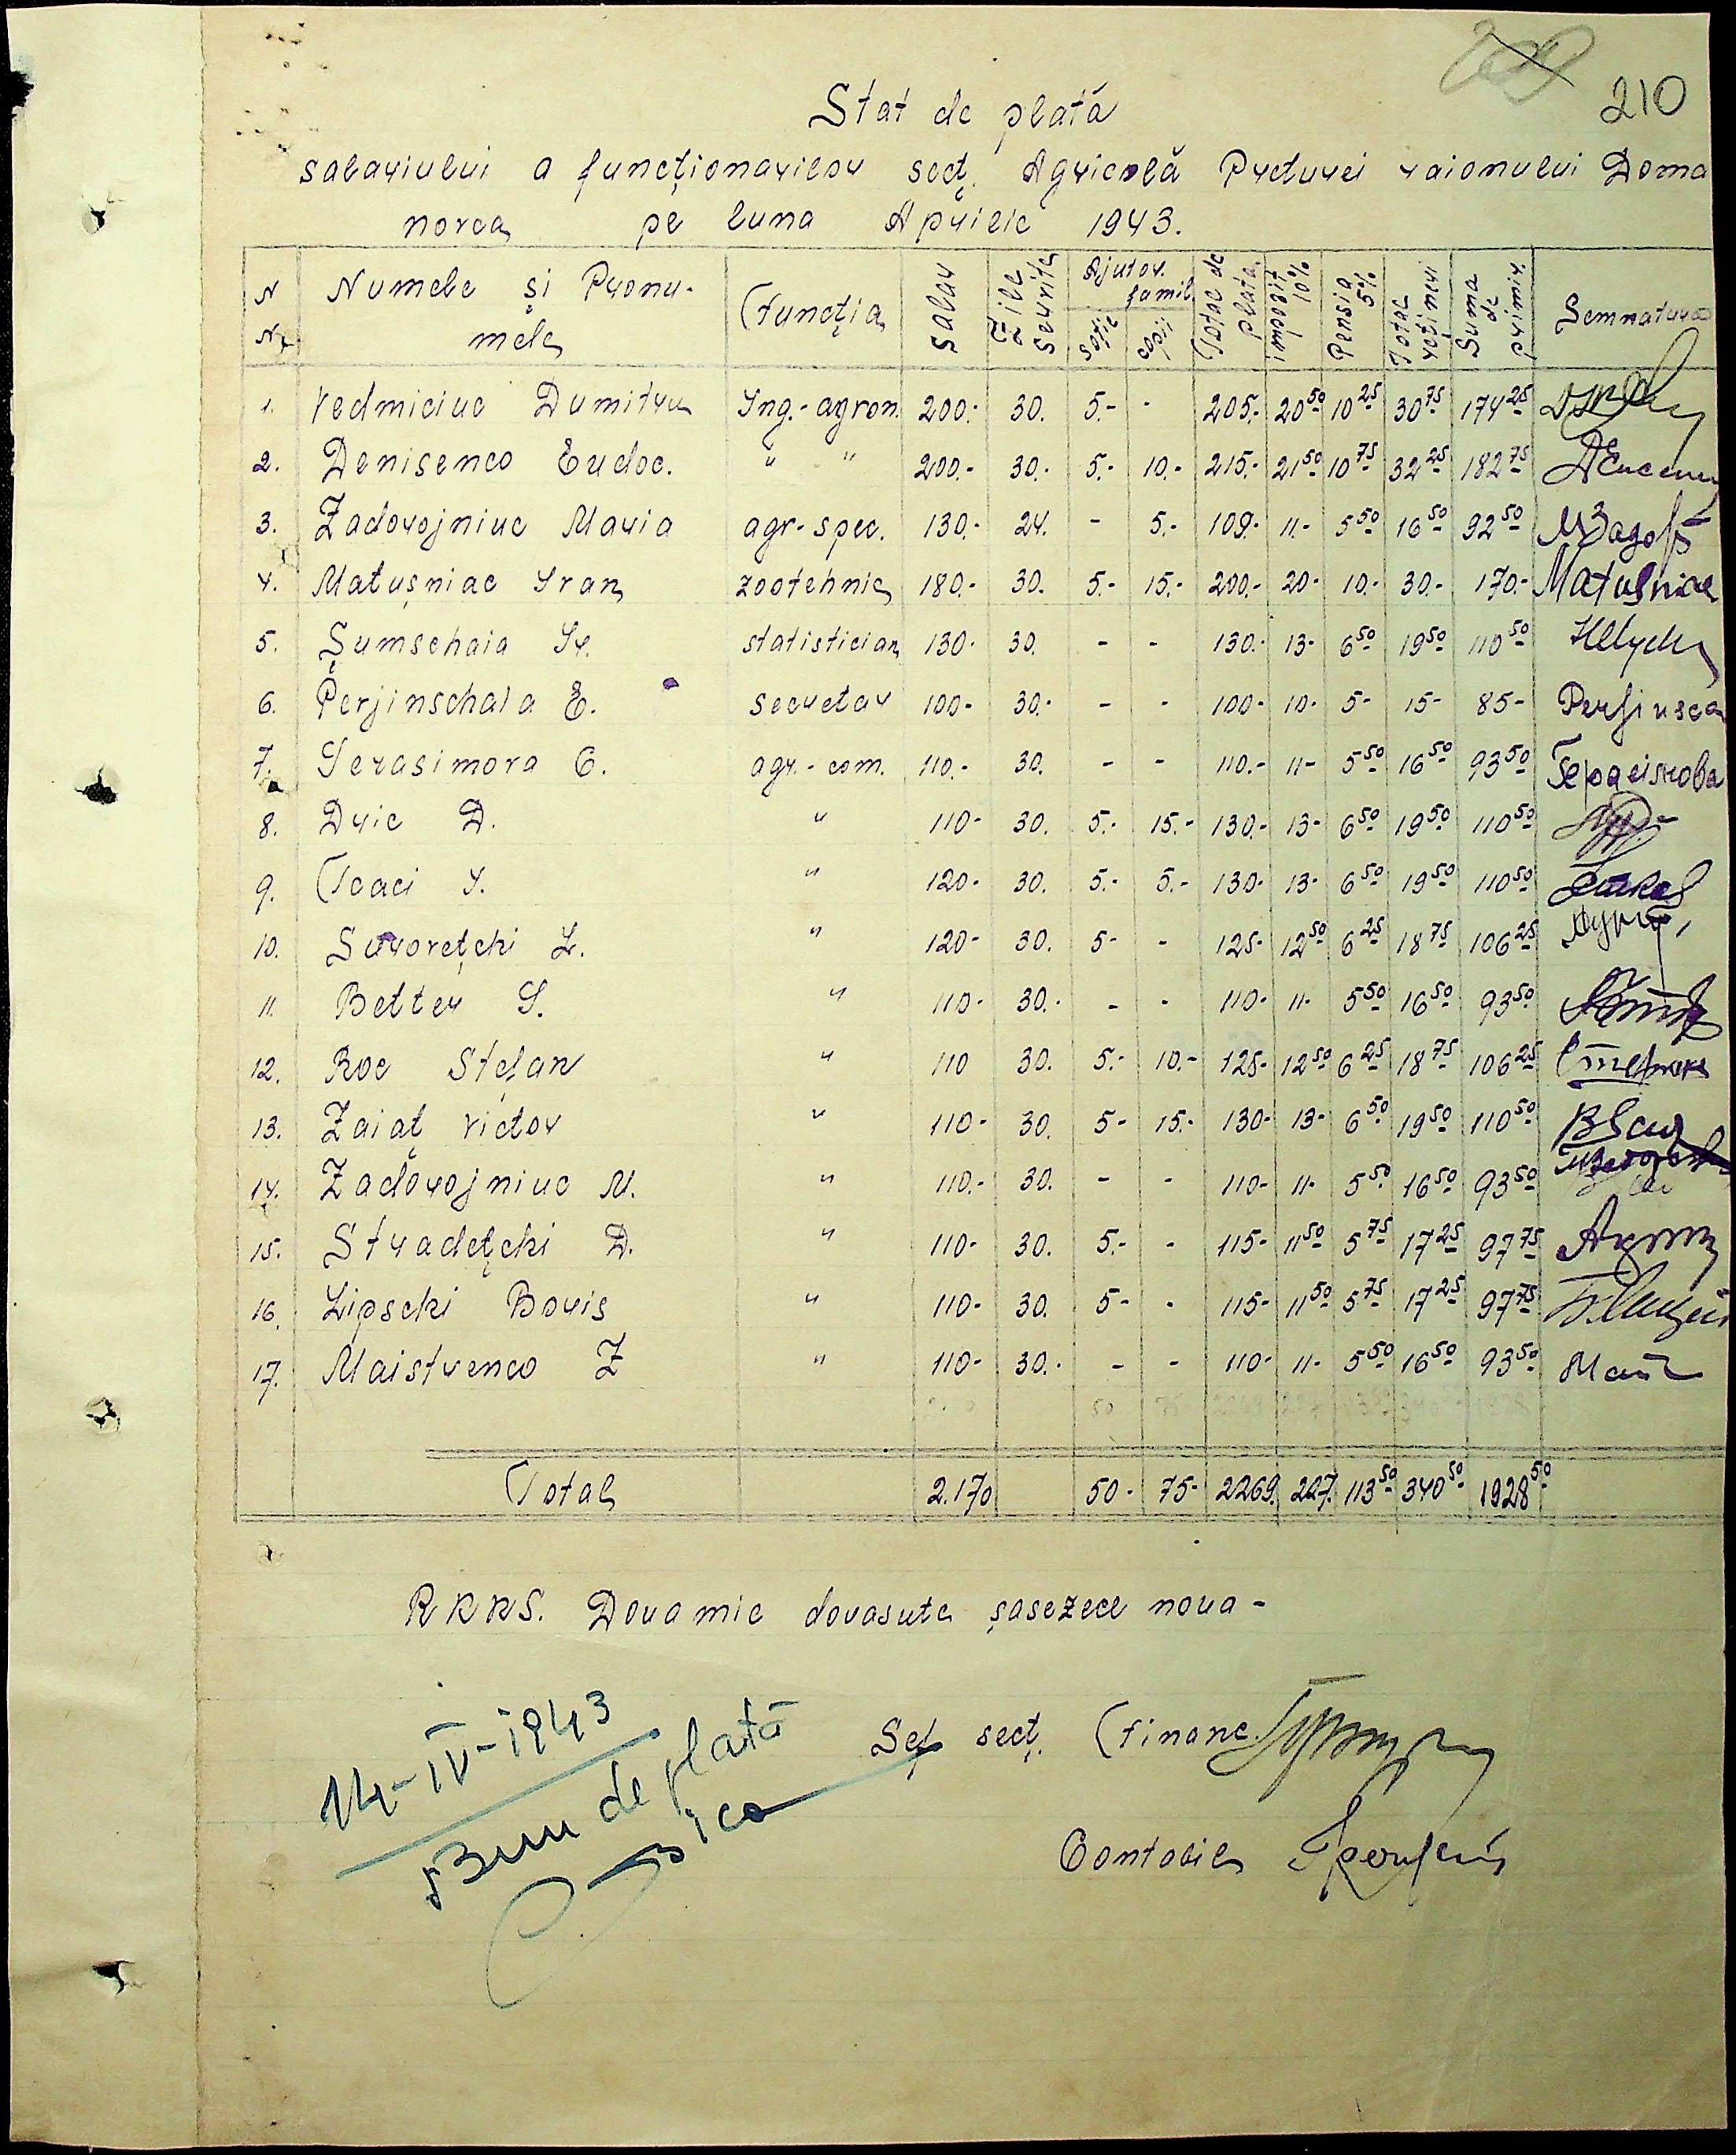 210
Stat de plată
salariului a funcționarilor secț. Agricolă Preturei raionului Doma
norca pe luna Aprilie 1943.
N N Numele și Pronumele Funcția Salar Zile servite Ajutor. famil. soție copii Total de plata impozit 10% Pensia 5% Total rețineri Suma de primir. Semnatura
1. Vedmiciuc Dumitru Ing.-agron. 200.- 30. 5.- - 205.- 20 50 10 25 30 75 174 25
2. Denisenco Eudoc. " " 200.- 30. 5.- 10.- 215.- 21 50 10 75 32 25 182 75
3. Zadorojniuc Maria agr-spec. 130- 24. - 5.- 109- 11.- 5 50 16 50 92 50
4. Matușniac Ivan zootehnic 180.- 30. 5.- 15.- 200.- 20- 10.- 30.- 170.- Matușniac
5. Șumschaia Ir. statistician 130- 30. - - 130.- 13- 6 50 19 50 110 50
6. Perjinschaia E. secretar 100- 30. - - 100- 10- 5- 15- 85- Perjinsca
7. Gerasimova E. agr.-com. 110.- 30. - - 110.- 11- 5 50 16 50 93 50 Герасимова
8. Dric D. " 110- 30. 5.- 15.- 130.- 13- 6 50 19 50 110 50
9. Tcaci I. " 120- 30. 5.- 5.- 130- 13- 6 50 19 50 110 50
10. Suvorețchi L. " 120- 30. 5- - 125- 12 50 6 25 18 75 106 25
11. Better S. " 110- 30. - - 110- 11- 5 50 16 50 93 50
12. Roc Ștefan " 110 30. 5.- 10.- 125- 12 50 6 25 18 75 106 25
13. Zaiaț Victor " 110- 30. 5- 15.- 130- 13- 6 50 19 50 110 50
14. Zadorojniuc M. " 110.- 30. - - 110- 11- 5 50 16 50 93 50
15. Stradețchi D. " 110- 30. 5.- - 115- 11 50 5 75 17 25 97 75
16. Lipschi Boris " 110- 30. 5- - 115- 11 50 5 75 17 25 97 75
17. Maistrenco Z " 110- 30. - - 110- 11- 5 50 16 50 93 50
Total 2.170 50- 75- 2269. 227. 113 50 340 50 1928 50
RKKS. Doua mie douasute șasezece noua -
14-IV-1943
Bun de plată
Șef secț. financ.
Contabil